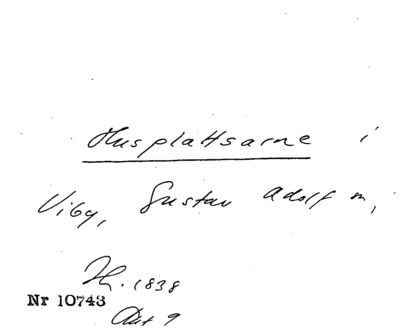 Husplattsarne i
Viby, Gustav Adolf m,
H. 1838
Nr 10743
Akt 9